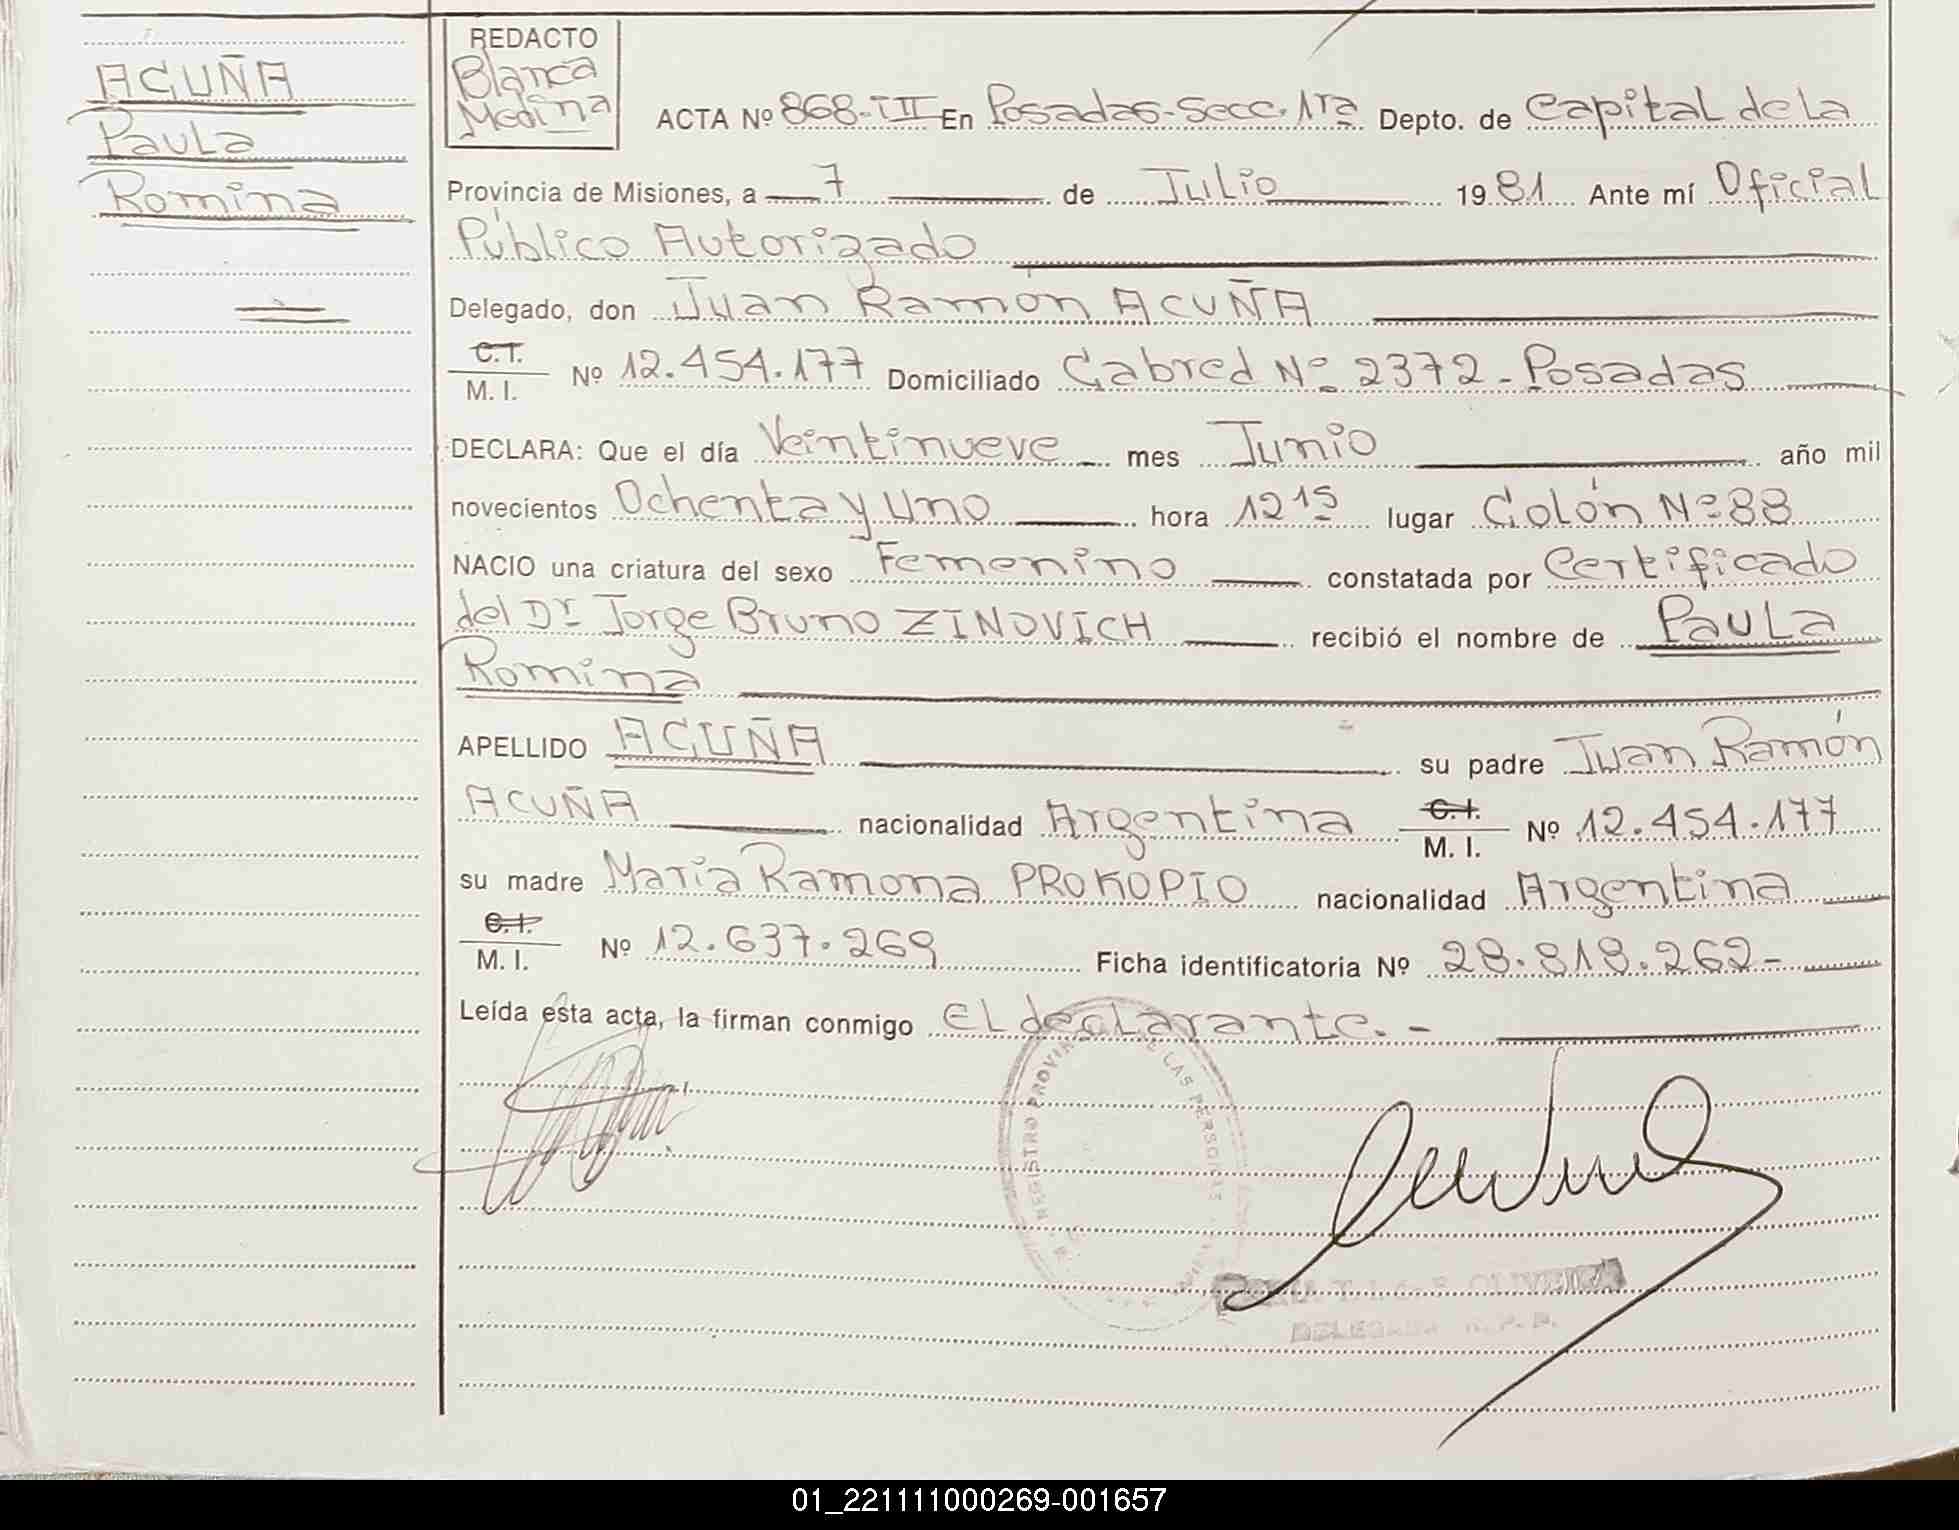 ACUÑA
Paula
Romina
REDACTO
Blanca
Medina
ACTA Nº 868-III En Posadas-Secc. 1ra Depto. de Capital de la
Provincia de Misiones, a 7 de Julio 1981 Ante mí Oficial
Público Autorizado
Delegado, don Juan Ramón ACUÑA
C.I.
M. I. Nº 12.454.177 Domiciliado Cabred Nº 2372 - Posadas
DECLARA: Que el día Veintinueve mes Junio año mil
novecientos Ochenta y Uno hora 12 15 lugar Colón Nº 88
NACIO una criatura del sexo Femenino constatada por Certificado
del Dr. Jorge Bruno ZINOVICH recibió el nombre de Paula
Romina
APELLIDO ACUÑA su padre Juan Ramón
ACUÑA nacionalidad Argentina C.I. M. I. Nº 12.454.177
su madre María Ramona PROKOPIO nacionalidad Argentina
C.I.
M. I. Nº 12.637.269 Ficha identificatoria Nº 28.818.262-
Leída esta acta, la firman conmigo el declarante.-
REGISTRO PROVIN DE LAS PERSONAS
OLIVEIRA
DELEGADA
01_221111000269-001657